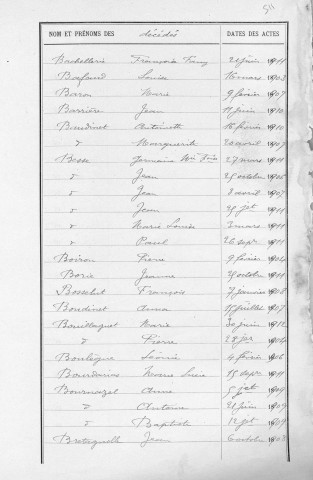 511
NOM ET PRÉNOMS DES décédés DATES DES ACTES
Bachellerie Françoise Fany 21 juin 1911
Bafaud Louise 16 mars 1903
Baron Marie 9 février 1907
Barrière Jean 11 juin 1910
Baudinet Antoinette 16 février 1910
d° Marguerite 20 avril 1907
Besse Germaine 27 mars 1911
d° Jean 25 octobre 1906
d° Jean 3 avril 1907
d° Jean 29 jet 1911
d° Marie Louise 2 mars 1911
d° Paul 26 sept 1911
Boiron Pierre 9 février 1904
Borie Jeanne 31 octobre 1911
Bosselut François 7 janvier 1908
Boudinet Anna 15 juillet 1907
Marie 30 juin 1912
d° Pierre 28 1904
Boulègue Léonie 4 février 1906
Bourdarias Marie Lucie 15 sept 1911
Bournazel Anne 5 jet 1909
d° Antoine 21 juin 1909
d° Baptiste 12 jet 1909
Jean 6 octobre 1903